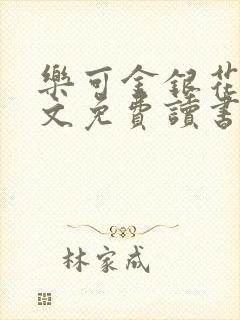 樂可金銀花
文免費讀書
林家成